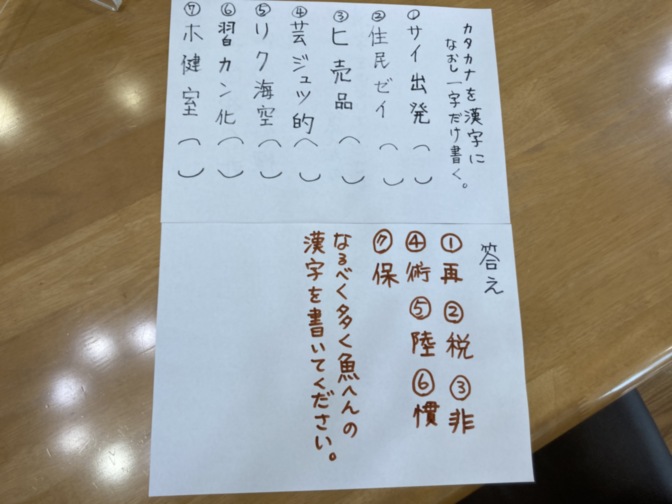 カタカナを漢字に
なおし一字だけ書く。
①サイ出発（　）
②住民ゼイ（　）
③ヒ売品（　）
④芸ジュツ的（　）
⑤リク海空（　）
⑥習カン化（　）
⑦ホ健室（　）
答え
①再 ②税 ③非
④術 ⑤陸 ⑥慣
⑦保
なるべく多く魚へんの
漢字を書いてください。